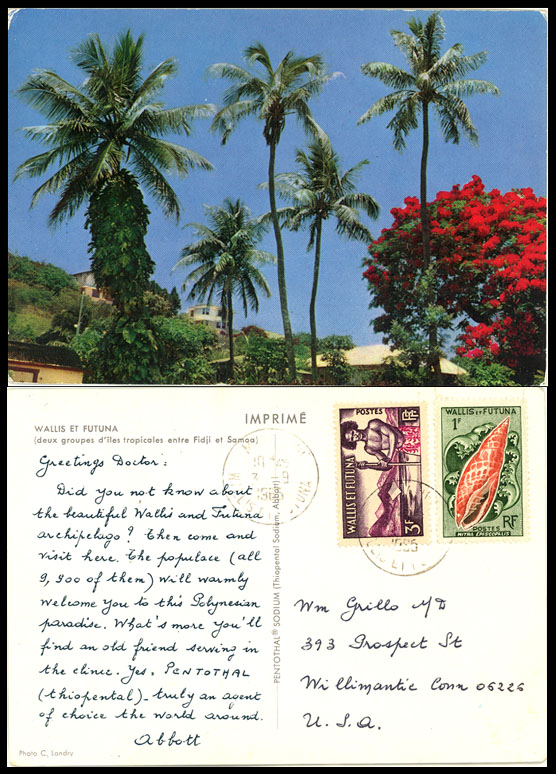 WALLIS ET FUTUNA
(deux groupes d'îles tropicales entre Fidji et Samoa)
IMPRIMÉ
Greetings Doctor:
Did you not know about
the beautiful Wallis and Futuna
archipelago? Then come and
visit here. The populace (all
9,900 of them) will warmly
welcome you to this Polynesian
paradise. What's more you'll
find an old friend serving in
the clinic. Yes, PENTOTHAL
(thiopental) - truly an agent
of choice the world around.
Abbott
Photo C, Landry
PENTOTHAL® SODIUM (Thiopental Sodium, Abbott)
POSTES
RF
WALLIS ET FUTUNA
3F
WALLIS ET FUTUNA
1F
POSTES
RF
MITRA EPISCOPALIS
Wm Grillo MD
393 Prospect St
Willimantic Conn 06226
U.S.A.